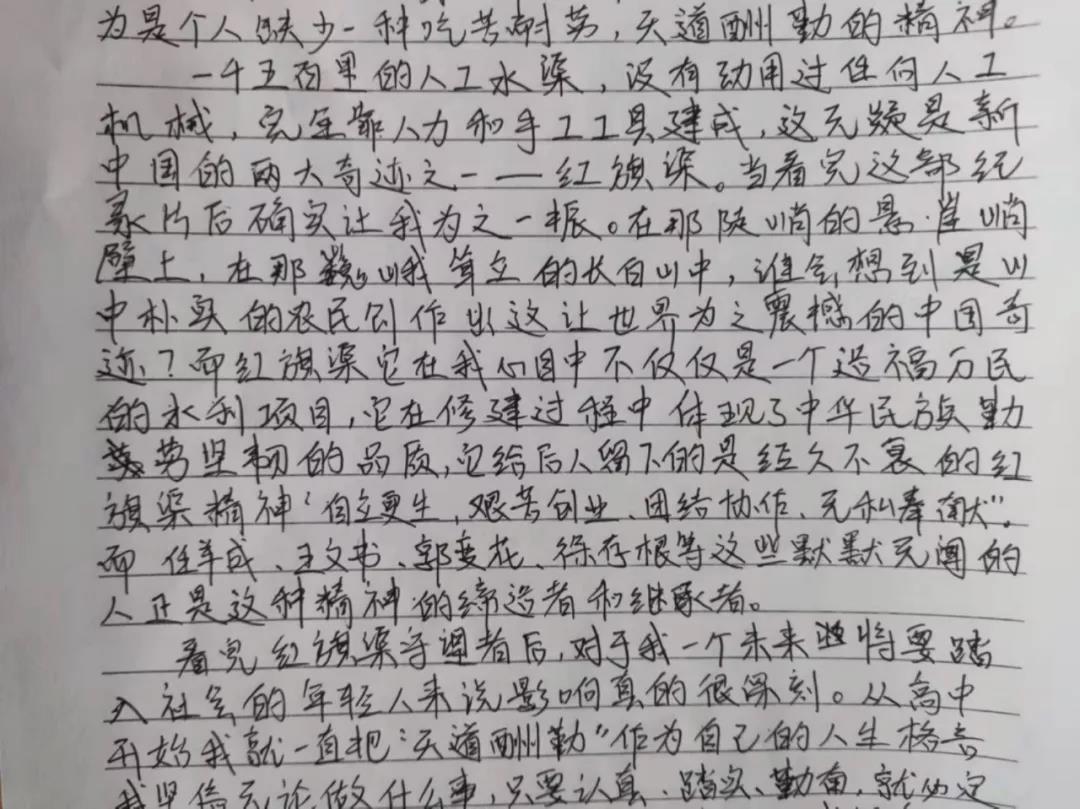 为是个人缺少一种吃苦耐劳，天道酬勤的精神。
一千五百里的人工水渠，没有动用过任何人工
机械，完全靠人力和手工工具建成，这无疑是新
中国的两大奇迹之一——红旗渠。当看完这部纪
录片后确实让我为之一振。在那陡峭的悬崖峭
壁上，在那巍峨耸立的长白山中，谁会想到是山
中朴实的农民创作出这让世界为之震撼的中国奇
迹？而红旗渠它在我心目中不仅仅是一个造福万民
的水利项目，它在修建过程中体现了中华民族勤
劳坚韧的品质，它给后人留下的是经久不衰的红
旗渠精神“自立更生，艰苦创业、团结协作、无私奉献”。
而任羊成、王文书、郭变花、徐存根等这些默默无闻的
人正是这种精神的缔造者和继承者。
看完红旗渠守望者后，对于我一个未来将要踏
入社会的年轻人来说影响真的很深刻。从高中
开始我就一直把“天道酬勤”作为自己的人生格言
我坚信无论做什么事，只要认真、踏实、勤奋，就